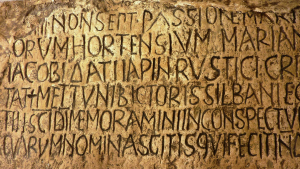 IIII NON SEPT PASSIONE MART
ORVM HORTENSIVM MARIAN
IACOBI DATI IAPIN RVSTICI CRI
TAT+ METTVNI BICTORIS SILBANI EG
TII SCI DI MEMORAMINI IN CONSPECTV
QVORVM NOMINA SCITIS QVI FECIT IN